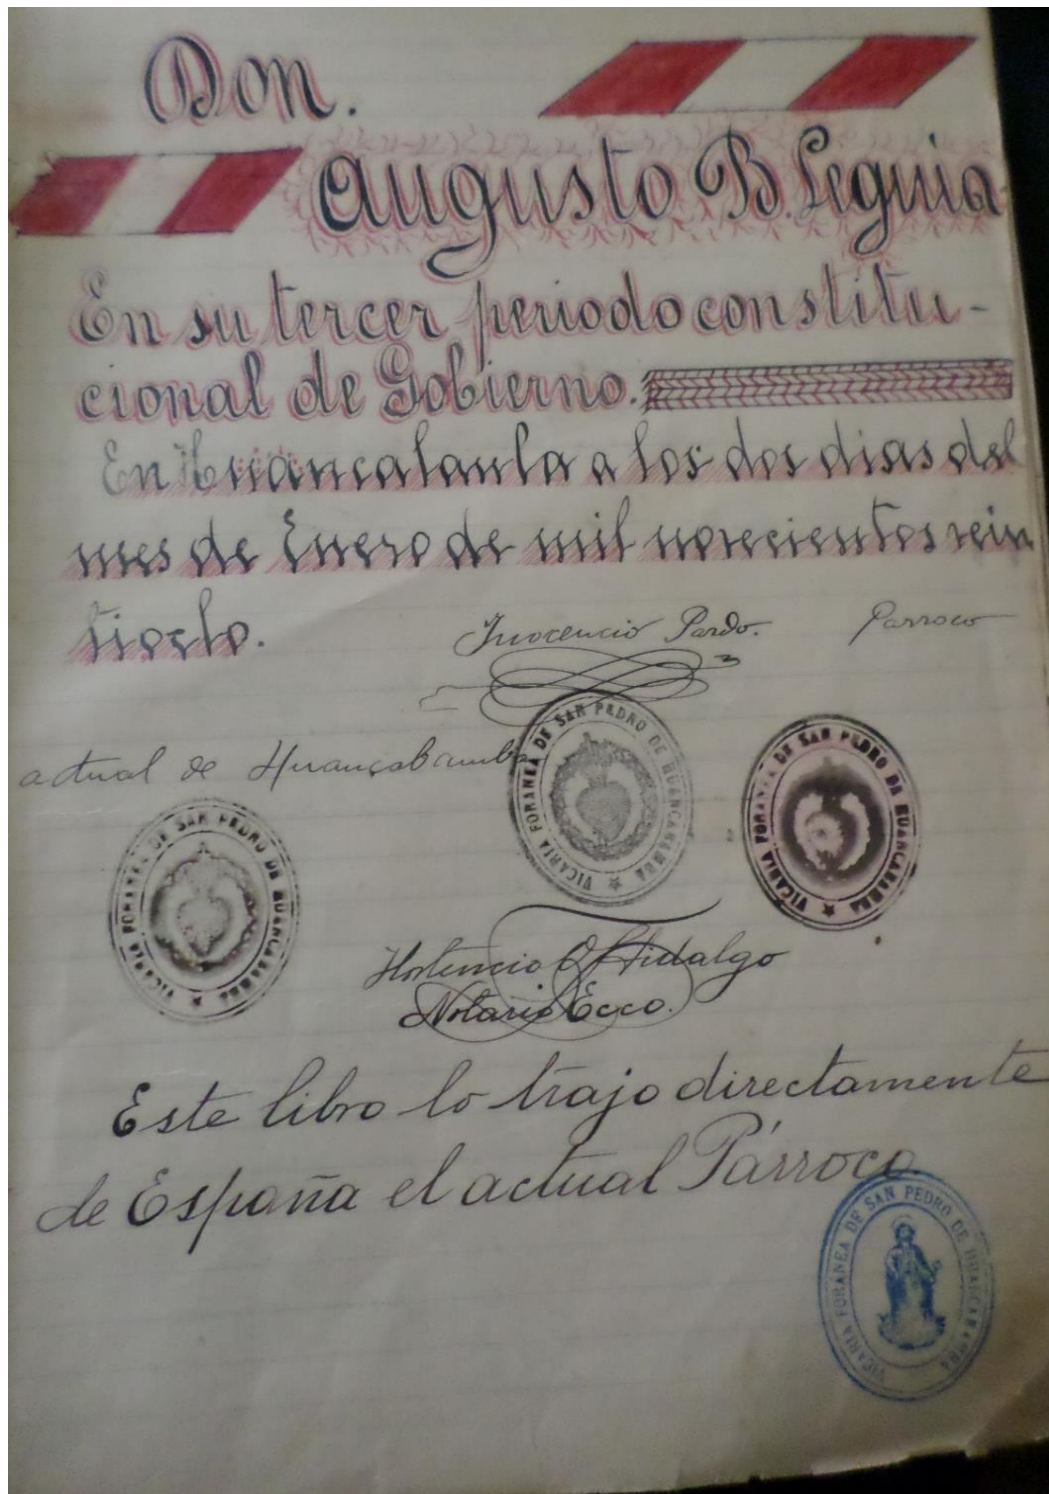 Don.
Augusto B. Leguia.
En su tercer periodo constitu-
cional de Gobierno.
En Huancabamba a los dos dias del
mes de Enero de mil novecientos vein
tiocho.
Inocencio Pardo. Parroco
actual de Huancabamba
VICARIA FORANEA DE SAN PEDRO DE HUANCABAMBA
VICARIA FORANEA DE SAN PEDRO DE HUANCABAMBA
VICARIA FORANEA DE SAN PEDRO DE HUANCABAMBA
Hortencio O Hidalgo
Notario Ecco.
Este libro lo trajo directamente
de España el actual Párroco
VICARIA FORANEA DE SAN PEDRO DE HUANCABAMBA